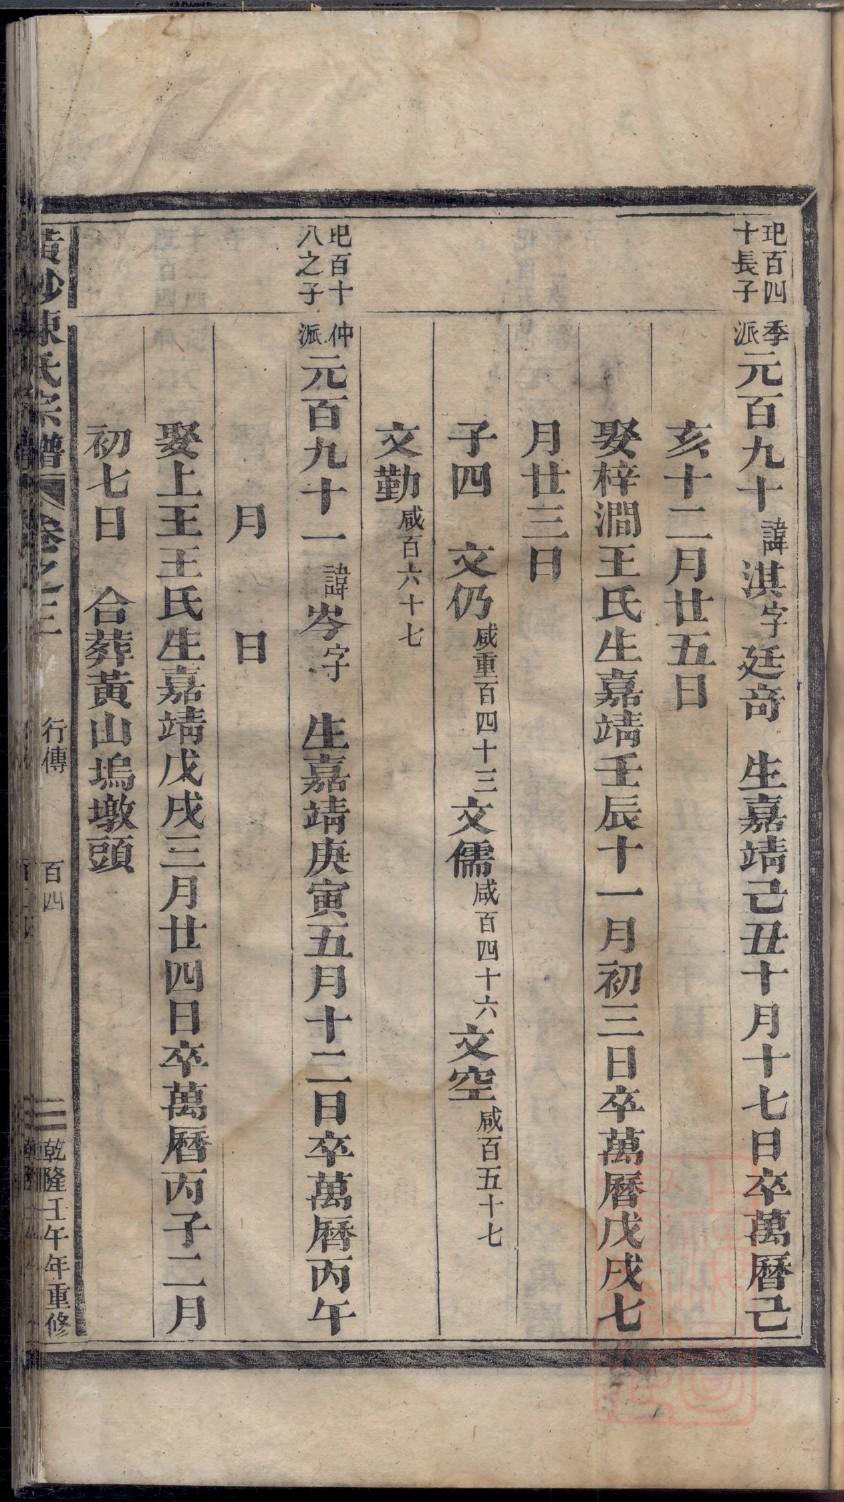 玘百四
十長子
季
派
元百九十諱淇字廷奇　生嘉靖己丑十月十七日卒萬曆己
亥十二月廿五日
娶梓澗王氏生嘉靖壬辰十一月初三日卒萬曆戊戌七
月廿三日
子四　文仍咸重百四十三文儒咸百四十六文空咸百五十七
文勤咸百六十七
玘百十
八之子
仲
派
元百九十一諱岑字　生嘉靖庚寅五月十二日卒萬曆丙午
月　日
娶上王王氏生嘉靖戊戌三月廿四日卒萬曆丙子二月
初七日　合葬黃山塢墩頭
黃沙陳氏宗譜　卷之三　行傳　百四　乾隆壬午年重修